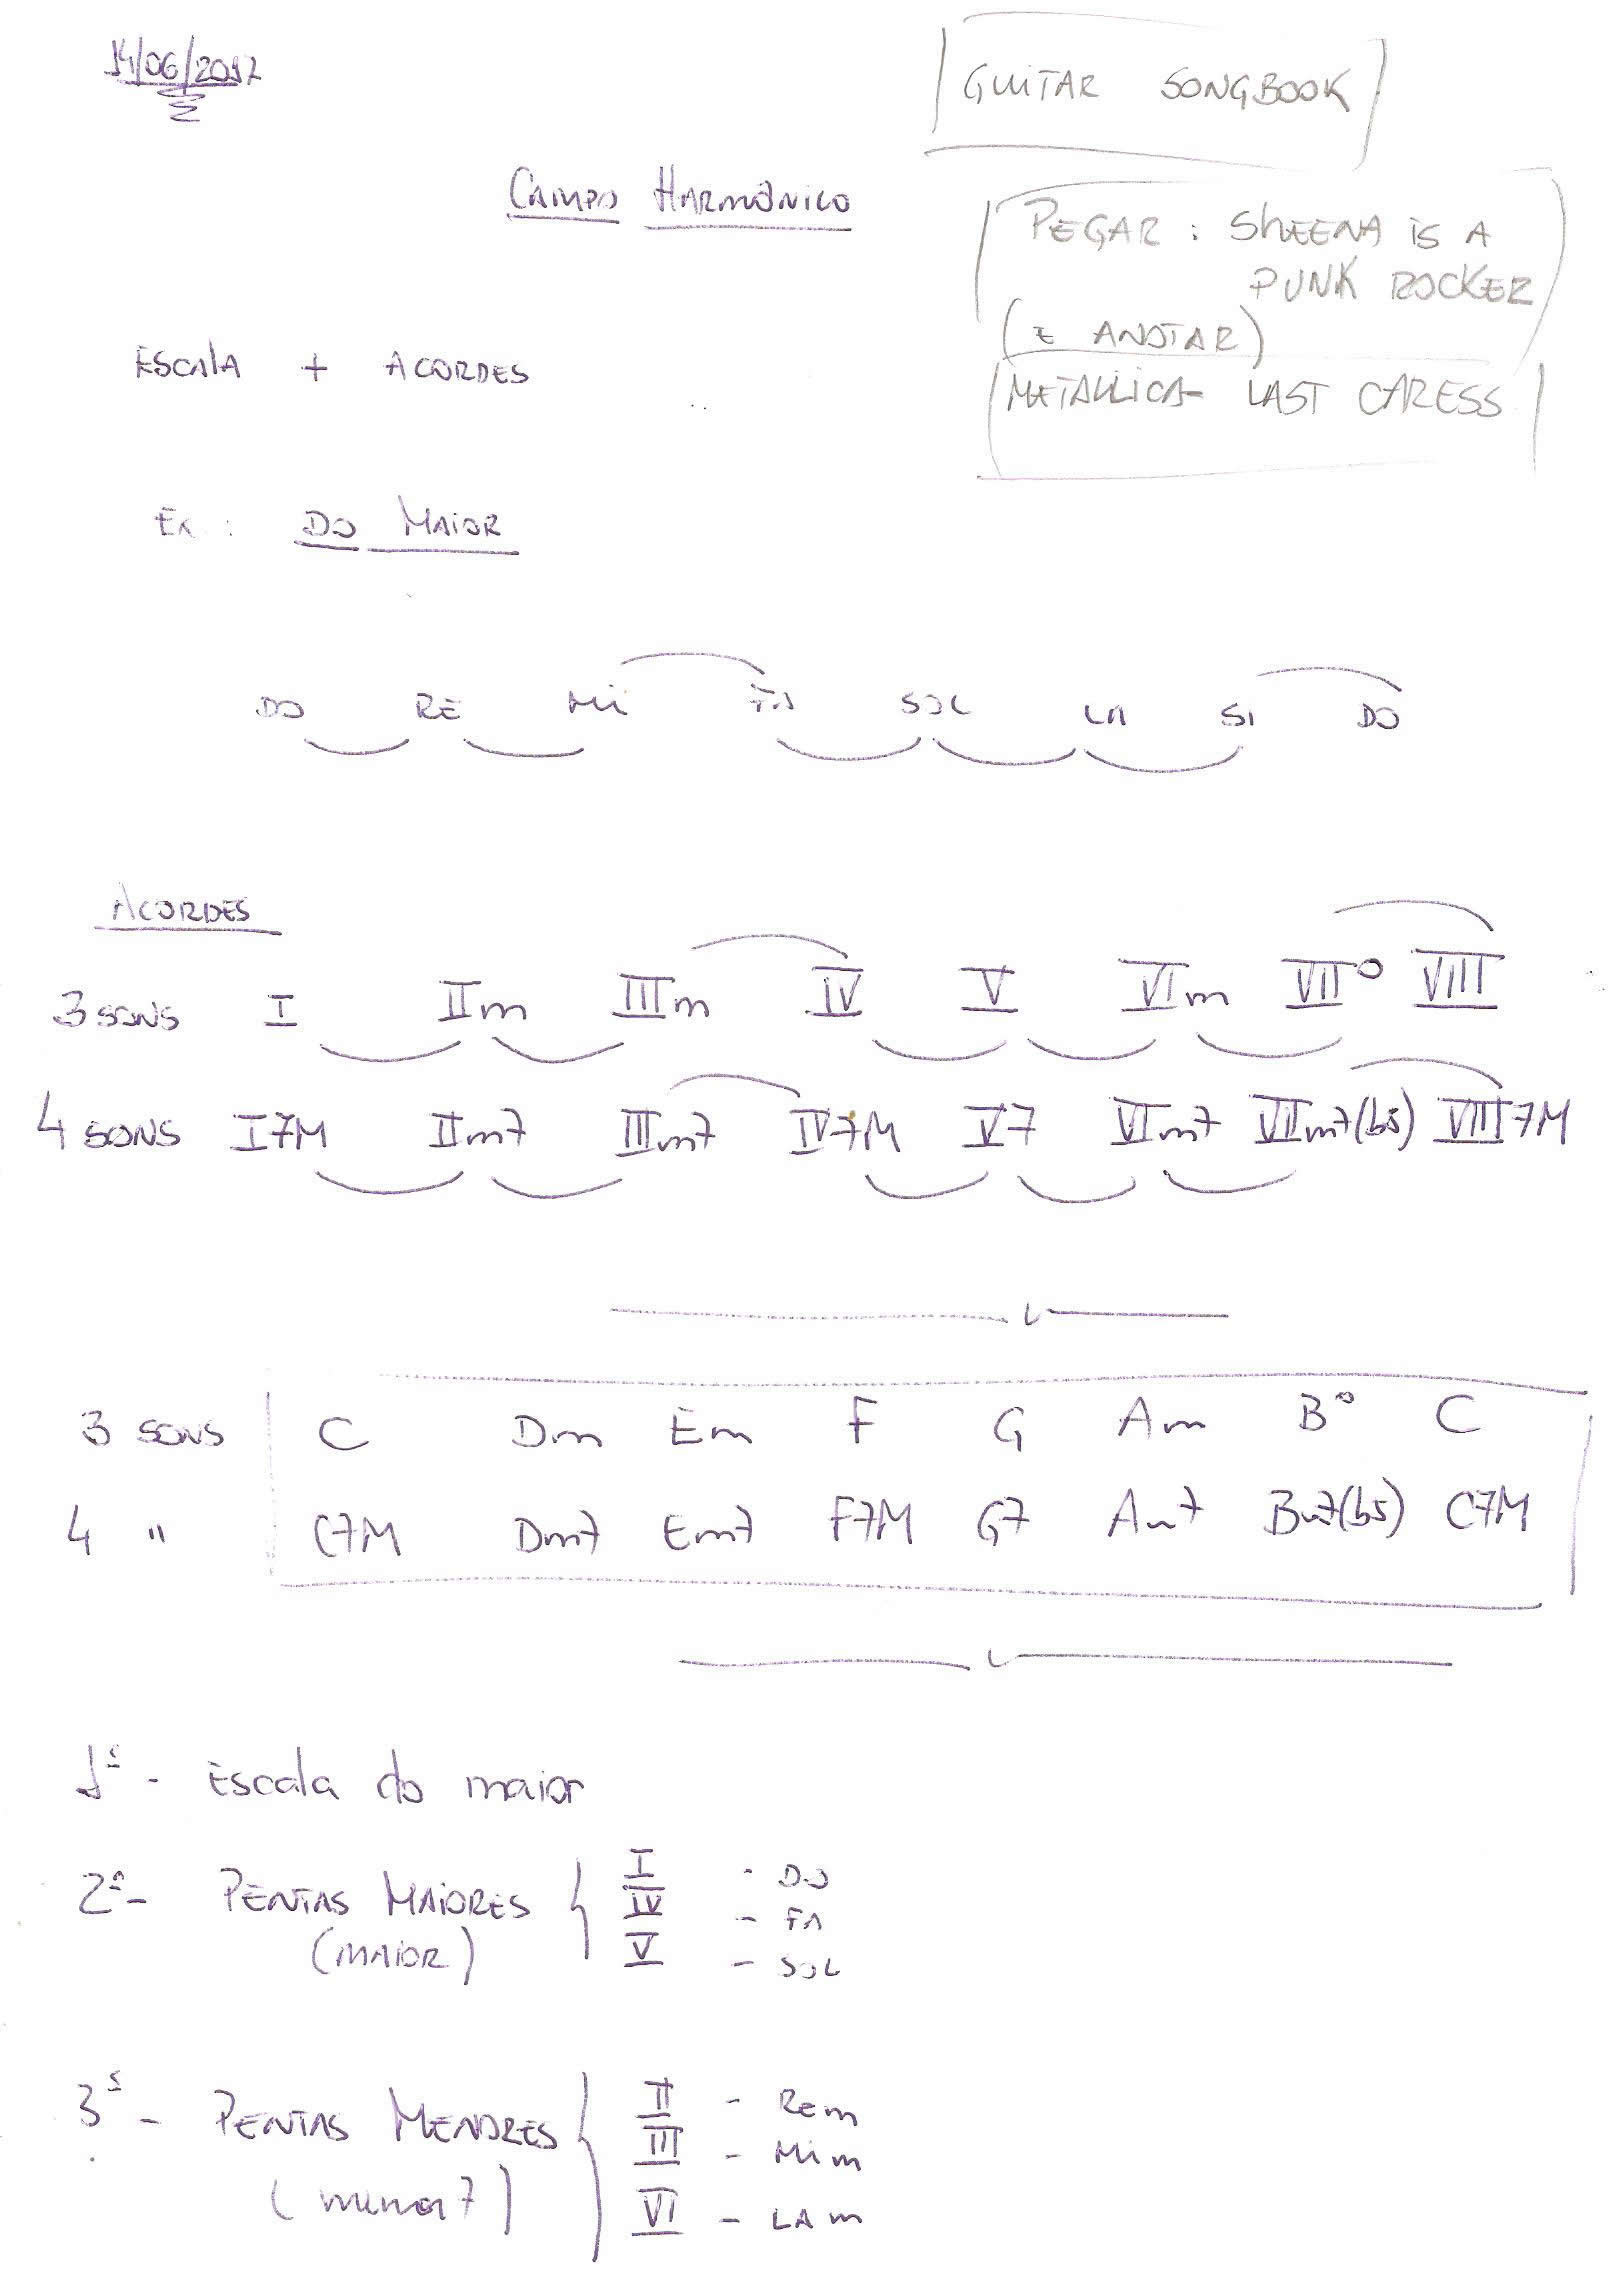 14/06/2017
GUITAR SONGBOOK
CAMPO HARMÔNICO
PEGAR : SHEENA IS A
PUNK ROCKER
(E ANOTAR)
METALLICA - LAST CARESS
ESCALA + ACORDES
EX.: DO MAIOR
DO RE MI FA SOL LA SI DO
ACORDES
3 SONS I IIm IIIm IV V VIm VII° VIII
4 SONS I7M IIm7 IIIm7 IV7M V7 VIm7 VIIm7(b5) VIII7M
3 SONS C Dm Em F G Am B° C
4 " C7M Dm7 Em7 F7M G7 Am7 Bm7(b5) C7M
1ª - Escala do maior
2ª - PENTAS MAIORES { I - DO
IV - FA
(MAIOR) V - SOL
3ª - PENTAS MENORES { II - REm
III - MIm
(menor 7) VI - LAm